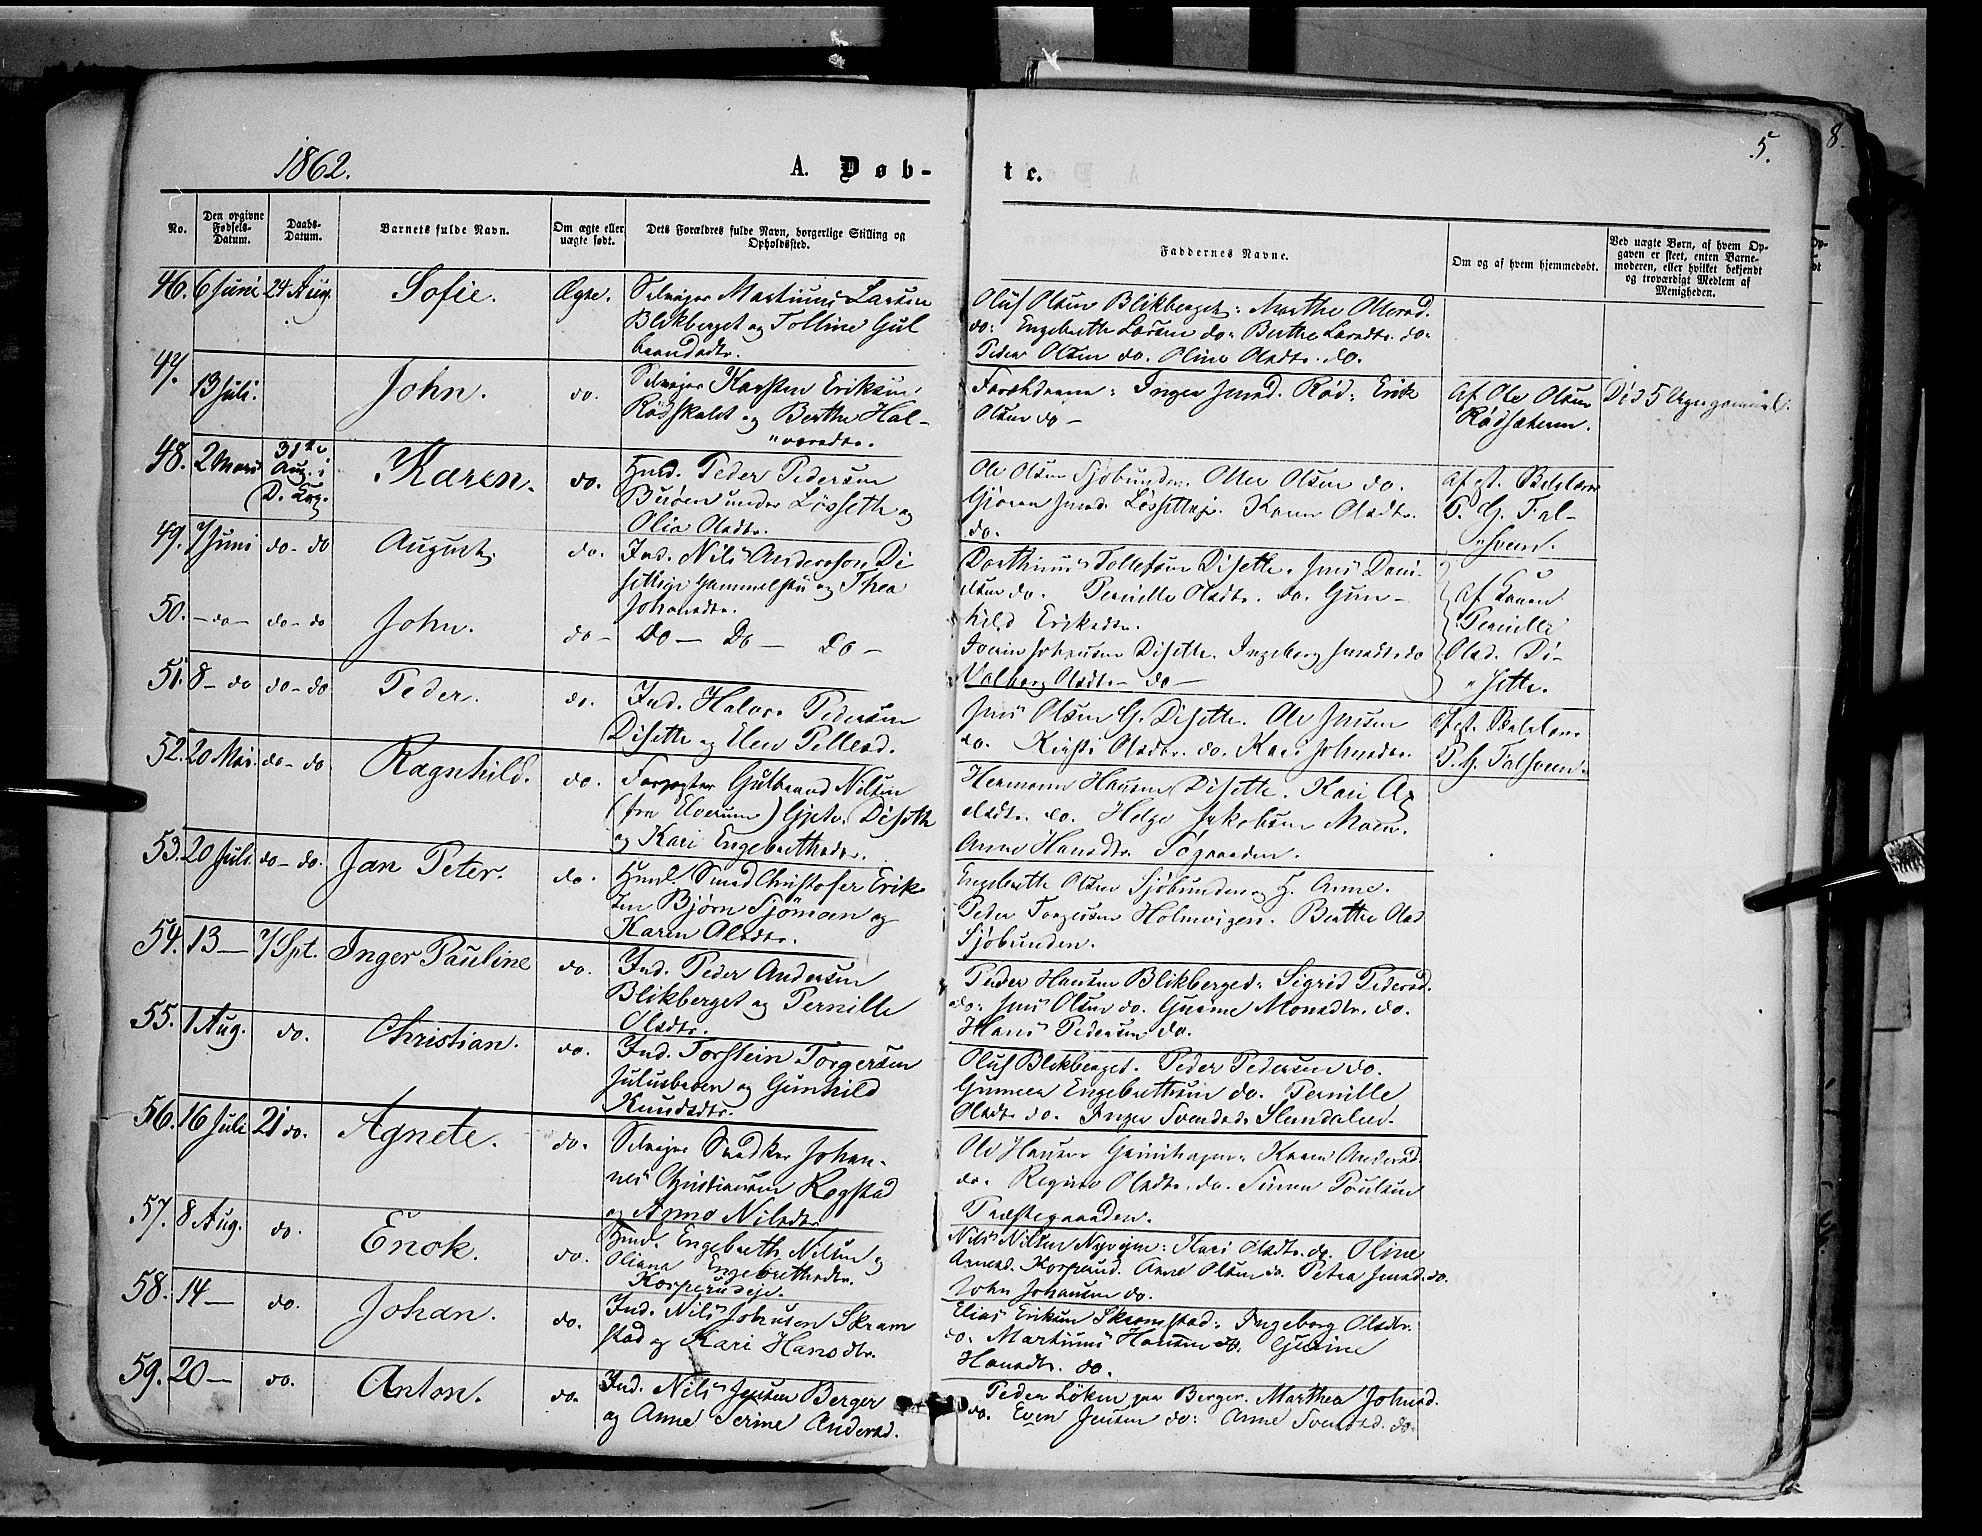 1862.
A. Døb-
te.
5.
8.
No.
Den opgivne Fødsels-Datum.
Daabs-Datum.
Barnets fulde Navn.
Om ægte eller uægte født.
Dets Forældres fulde Navn, borgerlige Stilling og Opholdssted.
Faddernes Navne.
Om og af hvem hjemmedøbt.
Ved uægte Børn, af hvem Op-
gaven er skeet, enten Barne-
moderen, eller hvilket bekjendt
og troværdigt Medlem af
Menigheden.
46. 6 Juni 24 Aug. Sofie. Ægte. Selveier Martinus Larsen
Blikberget ogOlline Gul
brandsdtr.
Oluf Olsen Blikberget: Marthe Olesd.
do: Engebreth Larsen do: Berthe Larsdtr. do:
Peder Olsen do. Oline Olsdtr. do.
47. 13 Juli. John. do. Selveier Karsten Eriksen
Rødskalet og Berthe Hal-
"vorsdtr.
Forældrene: Inger Jensd. Rød: Erik
Olsen do -
Af Ole Olsen
Rødsæteren.
Død 5 Uger gammel.
48. 2 Marts 31te Aug. i D. Kg. Karen. do. Huusd. Peder Pedersen
Buöen under Løssette og
Olia Olsdtr.
Ole Olsen Sjøbunden. Otter Olsen do.
Gjøran Jensd. Løssetteje. Karen Olsdtr.
do.
af st.
P. G. Fal-
"sveen.
49. 7 Juni do - do August. do. Ind. Nils Anderson Di
settige gammelstu og Thea
Johansdtr.
Dorthinus Tollefsen Disette. Jens Dani-
elsen do. Pernille Olsdtr. do. Gun-
hild Eriksdtr.
50. - do - do - do John. do - Do - Do - Do -
Joen Johansen Disette. Ingeborg Jensdtr. do
Valborg Olsdtr - do -
Af Konen
Pernille
Olsd. Di-
"sette.
51. 8 - do do - do Peder. do. Ind. Halvor Pedersen
Disette og Elen Pellesd.
Jens Olsen G. Disette. Ole Jensen
do. Kirsti Olsdtr. do. Kari Johnsdtr.
af st.
P. G. Falsveen.
52. 20 Mai. do - do Ragnhild. do. Forpagter Gulbrand Nilsen
(fra Elverum) Gjetv. Disette
og Kari Engebrethsdtr.
Hermann Hansen Disette. Kari Ax
elsdtr. do. Helge Jakobsen Moen.
Anne Hansdtr. Søgaarden.
53. 20 Juli. do - do. Jan Peter. do. Huusd. Smed Christofer Erik
sen Bjørn Sjömoen og
Karen Olsdtr.
Engebreth Olsen Sjøbunden og H. Anne.
Peder Torgersen Holmvigen. Berthe Olsd
Sjøbunden.
54. 13 - 7 Spt. Inger Pauline do. Ind. Peder Andersen
Blikberget og Pernille
Olsdtr.
Peder Hansen Blikberget: Sigrid Pedersd.
do: Jens Olsen do. Gunine Monsdtr. do.
Hans Pedersen do.
55. 1 Aug. do. Christian. do. Ind. Torstein Torgersen
Julusbaren og Gunhild
Knudsdtr.
Oluf Blikberget. Peder Pedersen do.
Gunner Engebrethsen do. Pernille
Olsdtr. do. Inger Svendsdtr. Slemdalen.
56. 16 Juli 21 do. Agnete. do. Selveier Snedker Johan-
nes Christiansen Rogstad
og Anne Nilsdtr.
Ole Hansen Grinihagen: Karen Andersd.
do. Regine Olsdtr. do. Simen Poulsen
Præstegaarden.
57. 8 Aug. do. Enok. do. Huusd. Engebreth Nilsen og
Oliana Engebrethsdtr.
Korperudeje.
Nils Nilsen Nyvejen: Kari Olsdtr. do. Oline
Arnesd. Korperud. Anne Olsen do. Petra Jensd. do.
John Johansen do.
58. 14 - do. Johan. do. Ind. Nils Johnsen Skram
stad og Kari Hansdtr.
Elias Eriksen Skramstad: Ingeborg Olsdtr.
do. Martinus Hansen do. Gurine
Hansdtr. do.
59. 20 - do. Anton. do. Ind. Nils Jensen Berger
og Anne Serine Andersd.
Peder Løken paa Berger. Marthea Johnsd.
do. Even Jensen do: Anne Svendsd. do.